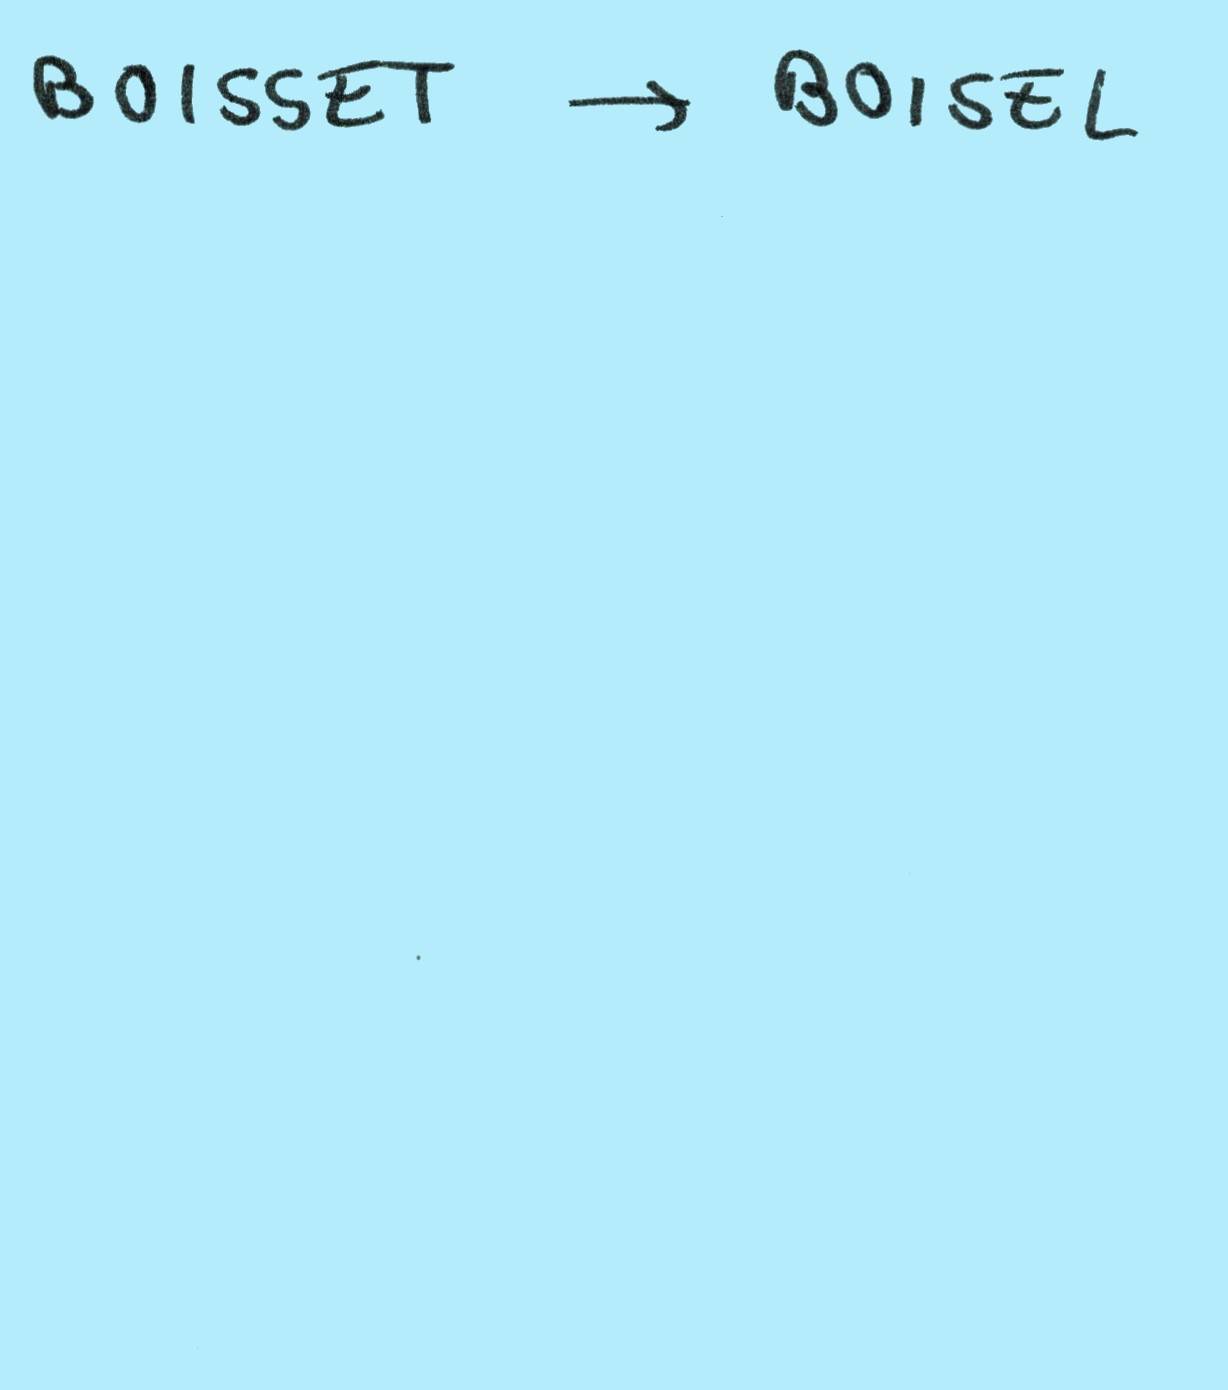 BOISSET → BOISEL